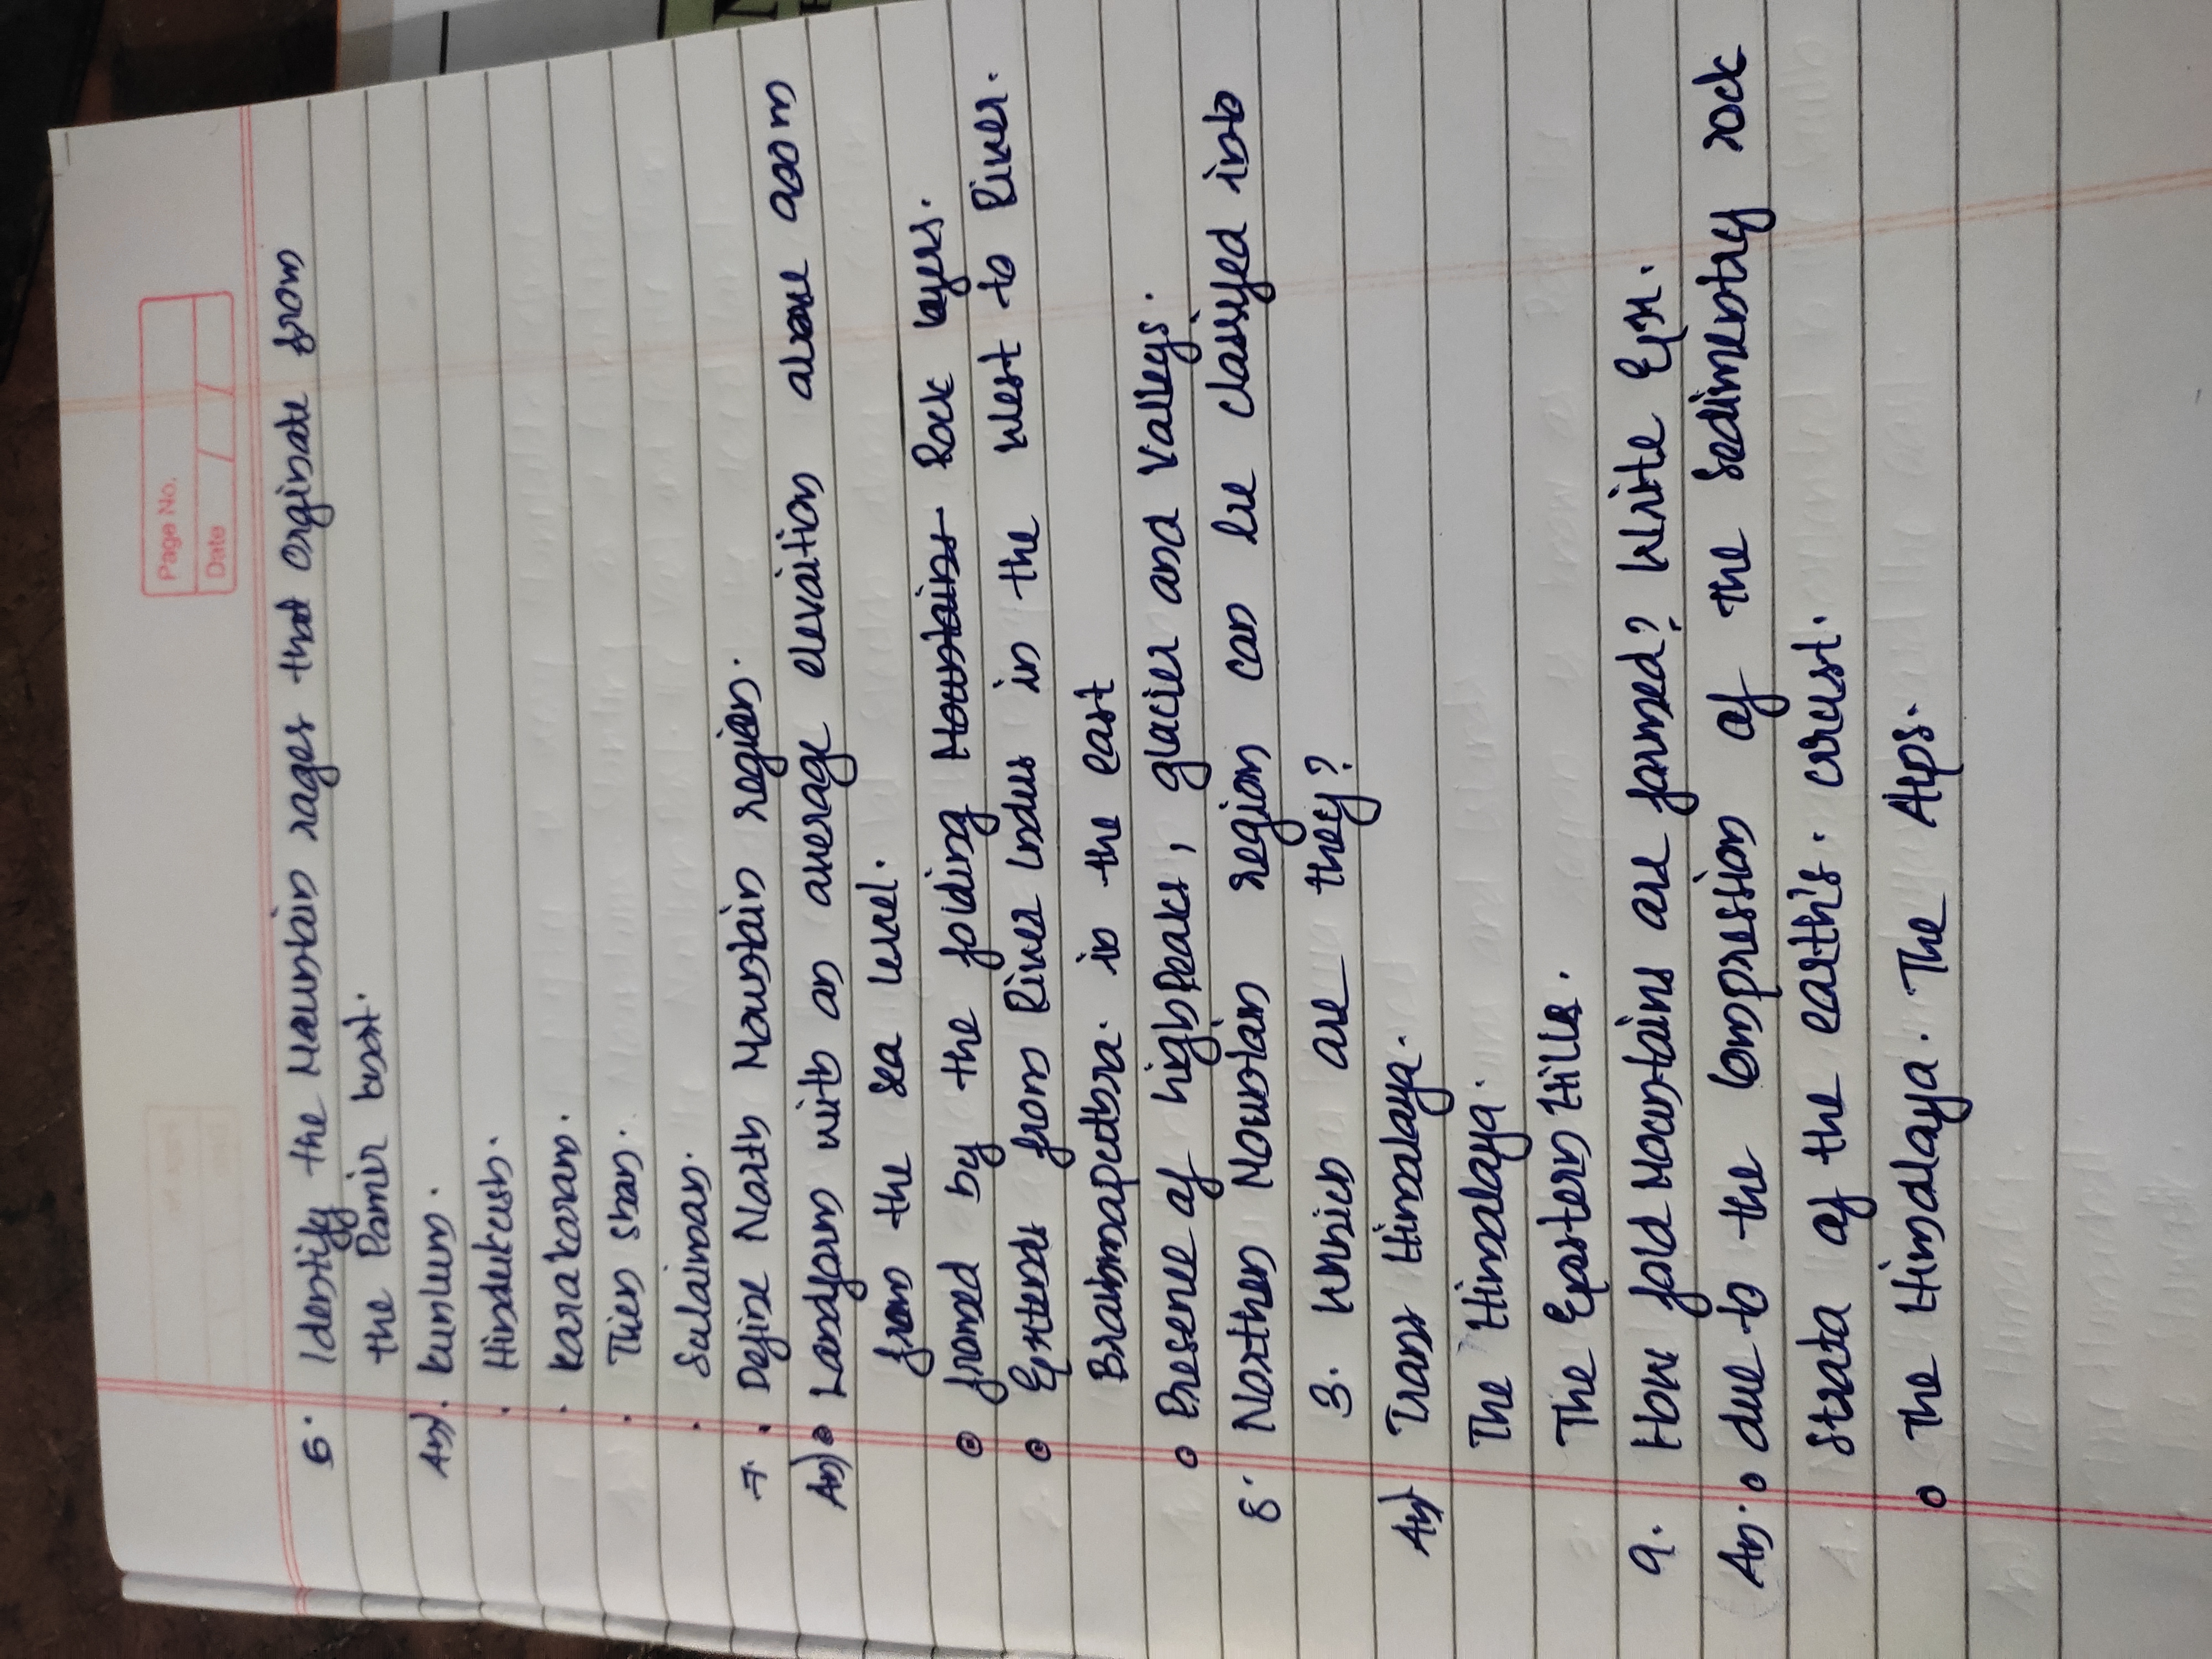 Page No.
Date / /
6. Identify the Mountain rages that orginate from
the Pamir knot.
An). Kunlum.
· Hindukush.
· Karakoram.
· Tien shan.
· Sulaiman.
7. · Define North Mountain region.
An) Landform with an average elevaition above 900m
from the sea level.
fromed by the folding Mountains Rock layers.
Extends from River Indus in the west to River.
Brahmaputhra. in the east
Presene of high Peaks, glacier and Valleys.
8. Northen Mountain region can be classified into
3. Which are they?
An) Trans Himalaya.
The Himalaya.
The Eastern Hills.
9. How fold Mountains are formed? Write Ex.
An. due to the Compression of the sedimentry rock
strata of the earth's. crust.
The Himalaya. The Alps.